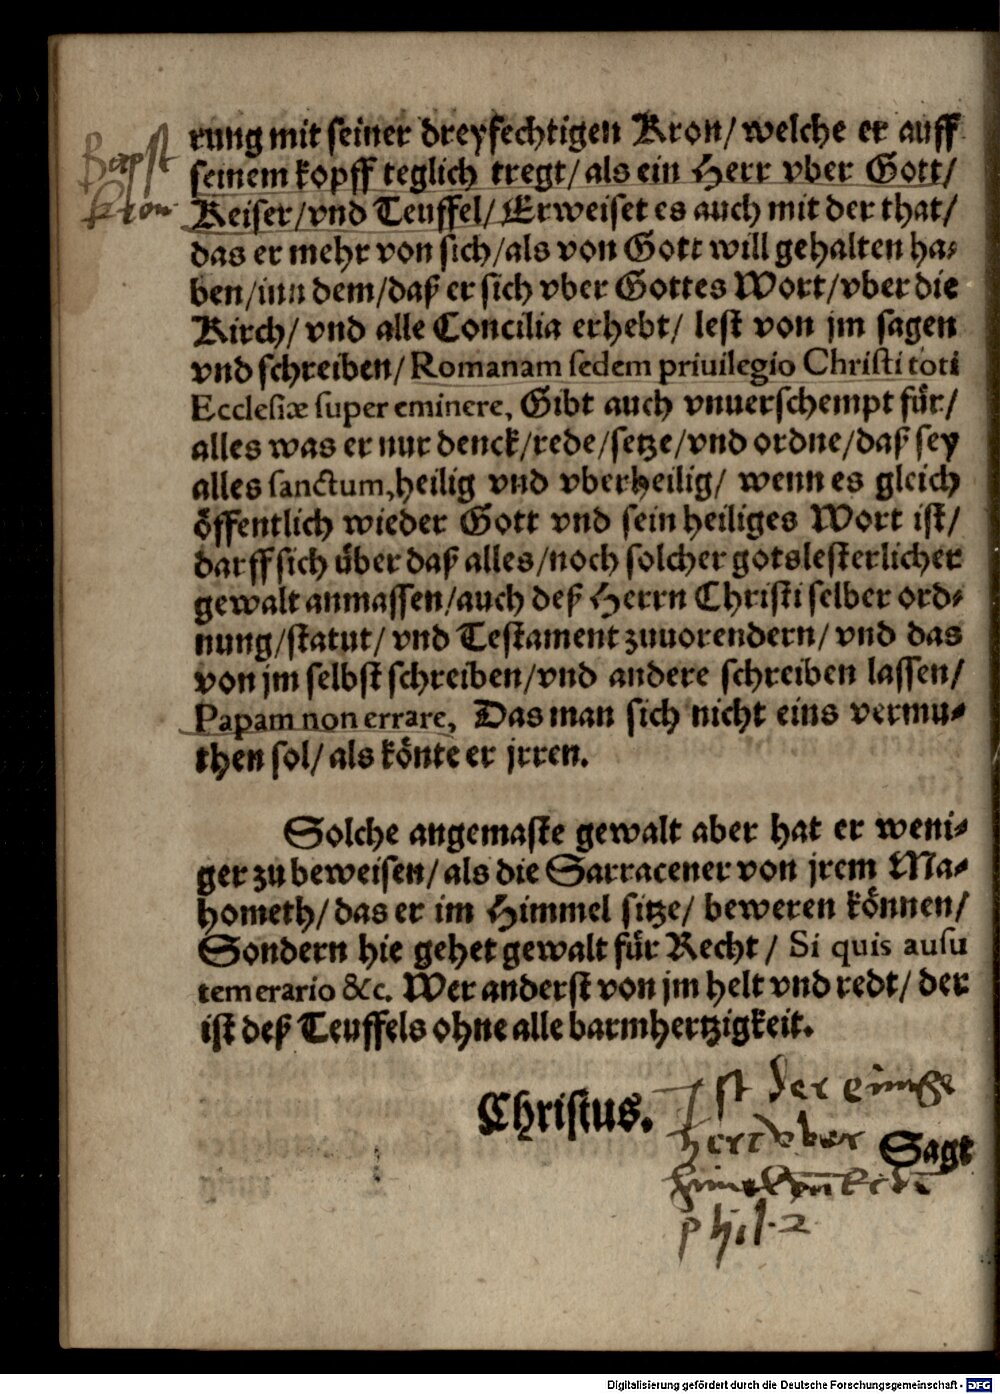 Bapst
Kron
rung mit seiner dreyfechtigen Kron/ welche er auff
seinem kopff teglich tregt/ als ein Herr vber Gott/
Keiser/ vnd Teuffel/ Erweiset es auch mit der that/
das er mehr von sich/ als von Gott will gehalten ha-
ben/ inn dem/ daß er sich vber Gottes Wort/ vber die
Kirch/ vnd alle Concilia erhebt/ lest von jm sagen
vnd schreiben/ Romanam sedem priuilegio Christi toti
Ecclesiæ super eminere, Gibt auch vnuerschempt für/
alles was er nur denck/ rede/ setze/ vnd ordne/ daß sey
alles sanctum, heilig vnd vberheilig/ wenn es gleich
öffentlich wieder Gott vnd sein heiliges Wort ist/
darff sich über daß alles/ noch solcher gotslesterlicher
gewalt anmassen/ auch deß Herrn Christi selber ord-
nung/ statut/ vnd Testament zuuorendern/ vnd das
von jm selbst schreiben/ vnd andere schreiben lassen/
Papam non errare, Das man sich nicht eins vermu-
then sol/ als könte er jrren.
Solche angemaste gewalt aber hat er weni-
ger zu beweisen/ als die Sarracener von jrem Ma-
hometh/ das er im Himmel sitze/ beweren können/
Sondern hie gehet gewalt für Recht/ Si quis ausu
temerario &c. Wer anderst von jm helt vnd redt/ der
ist deß Teuffels ohne alle barmhertzigkeit.
Christus. Ist der einige
Herr vber
Sagt
phil. 2
Digitalisierung gefördert durch die Deutsche Forschungsgemeinschaft - DFG